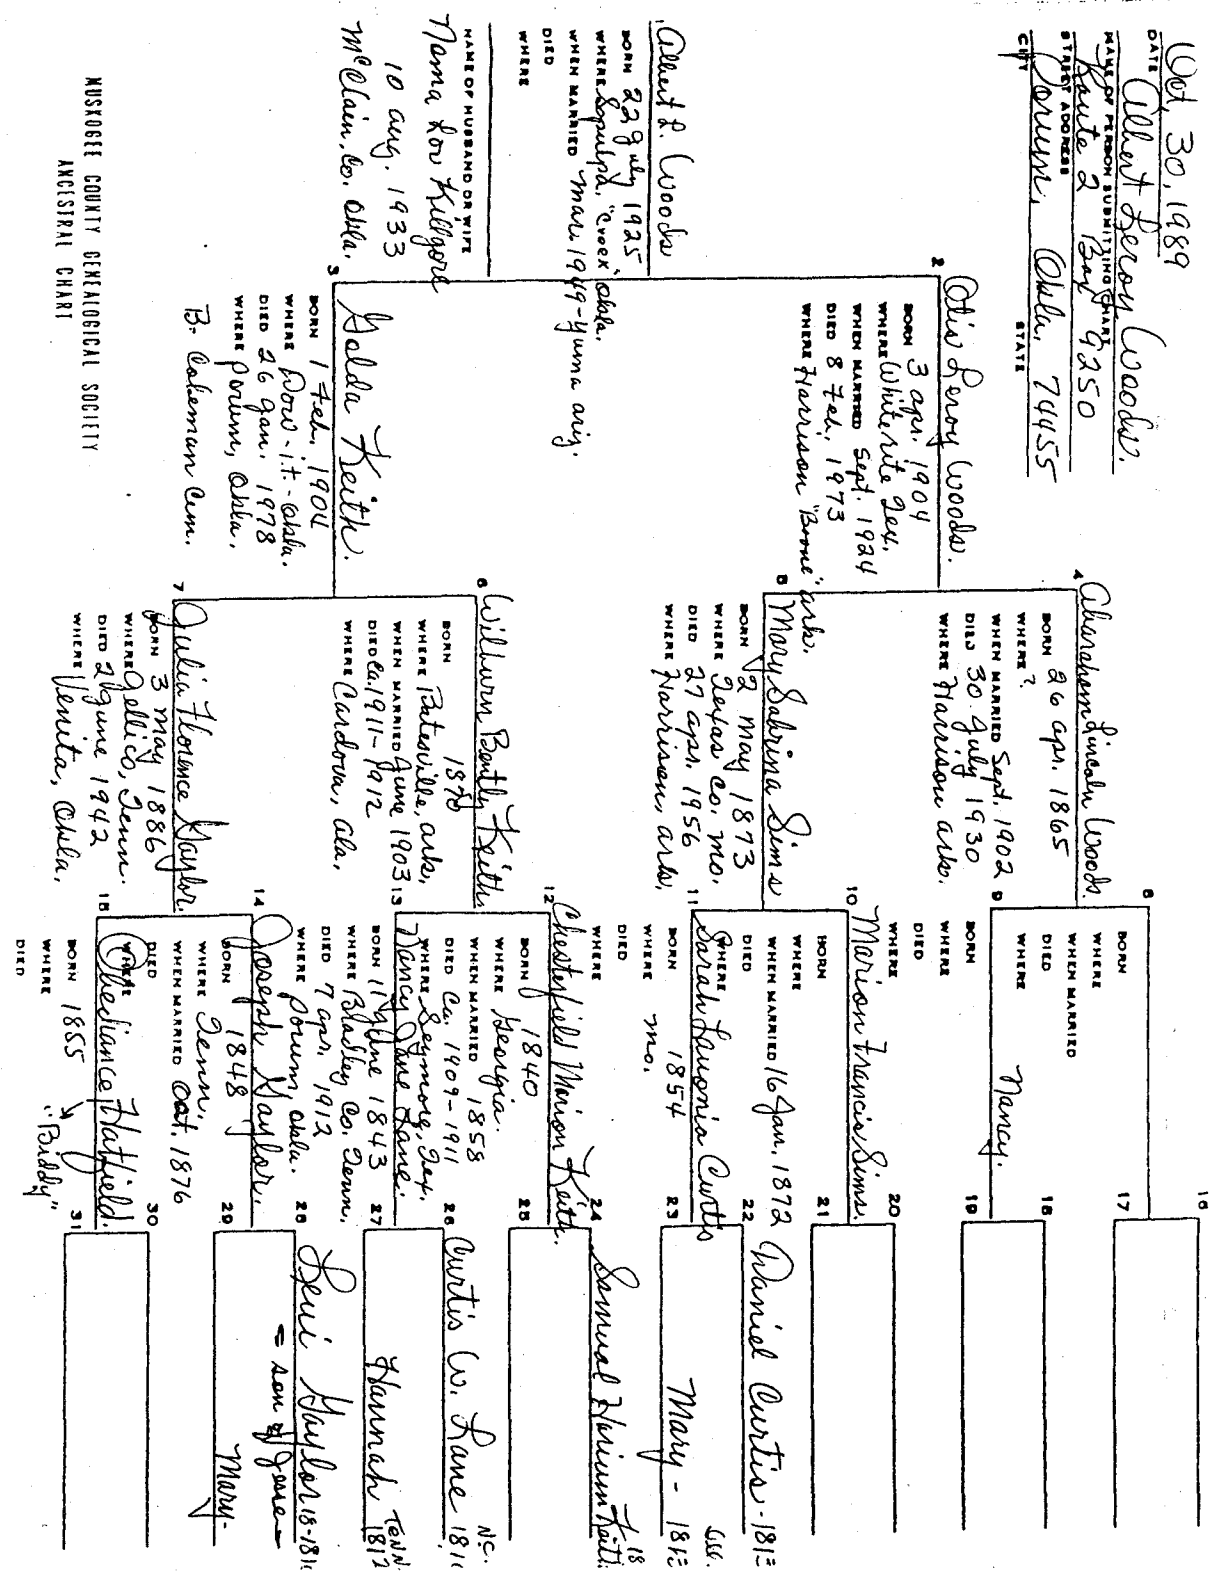 Oct, 30, 1989
DATE
Albert Leroy Woods.
NAME OF PERSON SUBMITTING CHART
Route 2 Box 9250
STREET ADDRESS
Porum, Okla. 74455
CITY STATE
Albert L. Woods
BORN 22 July 1925
WHERE Sapulpa, "Creek" Okla.
WHEN MARRIED Mar. 1949-Yuma Ariz.
DIED
WHERE
NAME OF HUSBAND OR WIFE
Nama Lou Killgore
10 Aug. 1933
McClain, Co. Okla.
MUSKOGEE COUNTY GENEALOGICAL SOCIETY
ANCESTRAL CHART
2
Otis Leroy Woods.
BORN 3 Apr. 1904
WHERE Whiterite Tex.
WHEN MARRIED Sept. 1924
DIED 8 Feb, 1973
WHERE Harrison "Boone" Ark.
3
Golda Keith.
BORN 1 Feb. 1904
WHERE Dow-i.t.-Okla.
DIED 26 Jan. 1978
WHERE Porum, Okla.
B- Coleman Cem.
4
Abraham Lincoln Woods.
BORN 26 Apr. 1865
WHERE ?
WHEN MARRIED Sept. 1902
DIED 30 July 1930
WHERE Harrison Ark.
5
Mary Sabrina Sims
BORN 2 May 1873
WHERE Texas Co. Mo.
DIED 27 Apr. 1956
WHERE Harrison, Ark,
6
Wilburn Bently Keith
BORN
WHERE Batesville, Ark,
WHEN MARRIED June 1903
DIED Ca. 1911-1912
WHERE Cardova, Ala,
7
Julia Florence Gaylor.
BORN 3 May 1886
WHERE Jellico, Tenn.
DIED 2 June 1942
WHERE Venita, Okla,
8
BORN
WHERE
WHEN MARRIED
DIED
WHERE
9
Nancy.
BORN
WHERE
DIED
WHERE
10
Marion Francis Sims.
BORN
WHERE
WHEN MARRIED 16 Jan. 1872
DIED
WHERE
11
Sarah Lavonia Curtis
BORN 1854
WHERE Mo.
DIED
WHERE
12
Chesterfield Marion Keith.
BORN 1840
WHERE Georgia.
WHEN MARRIED 1858
DIED Ca. 1909-1911
WHERE Seymore, Tex.
13
Nancy Jane Lane.
BORN 11 June 1843
WHERE Bradley Co. Tenn.
DIED 7 Apr. 1912
WHERE Porum, Okla.
14
Joseph Gaylor.
BORN 1848
WHERE Tenn.
WHEN MARRIED Oct. 1876
DIED
WHERE
15
Obediance Hatfield.
BORN 1855 "Biddy"
WHERE
DIED
16
17
18
19
20
21
22
Daniel Curtis-
23
Mary-
24
Samual Harium Keith
25
26
Curtis W. Lane
N.C.
27
Hannah Tenn. 1812
28
Levi Gaylor
= son of Jesse
29
Mary-
30
31